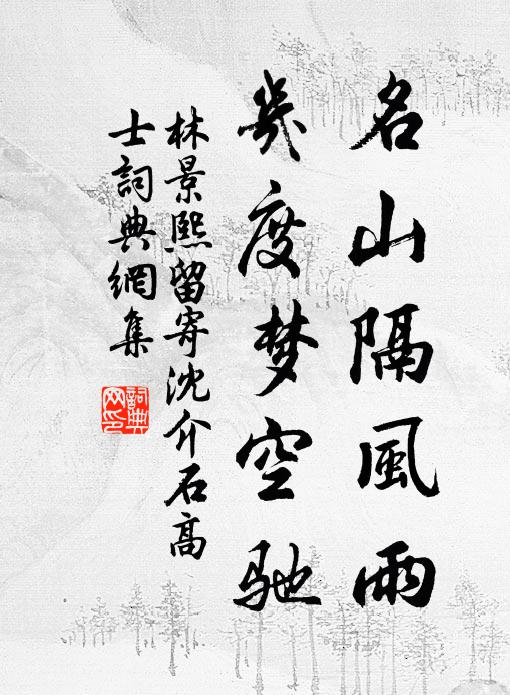 名山隔風雨
幾度梦空馳
林景熙留寄沈介石高
士詞典網集
詞典网印